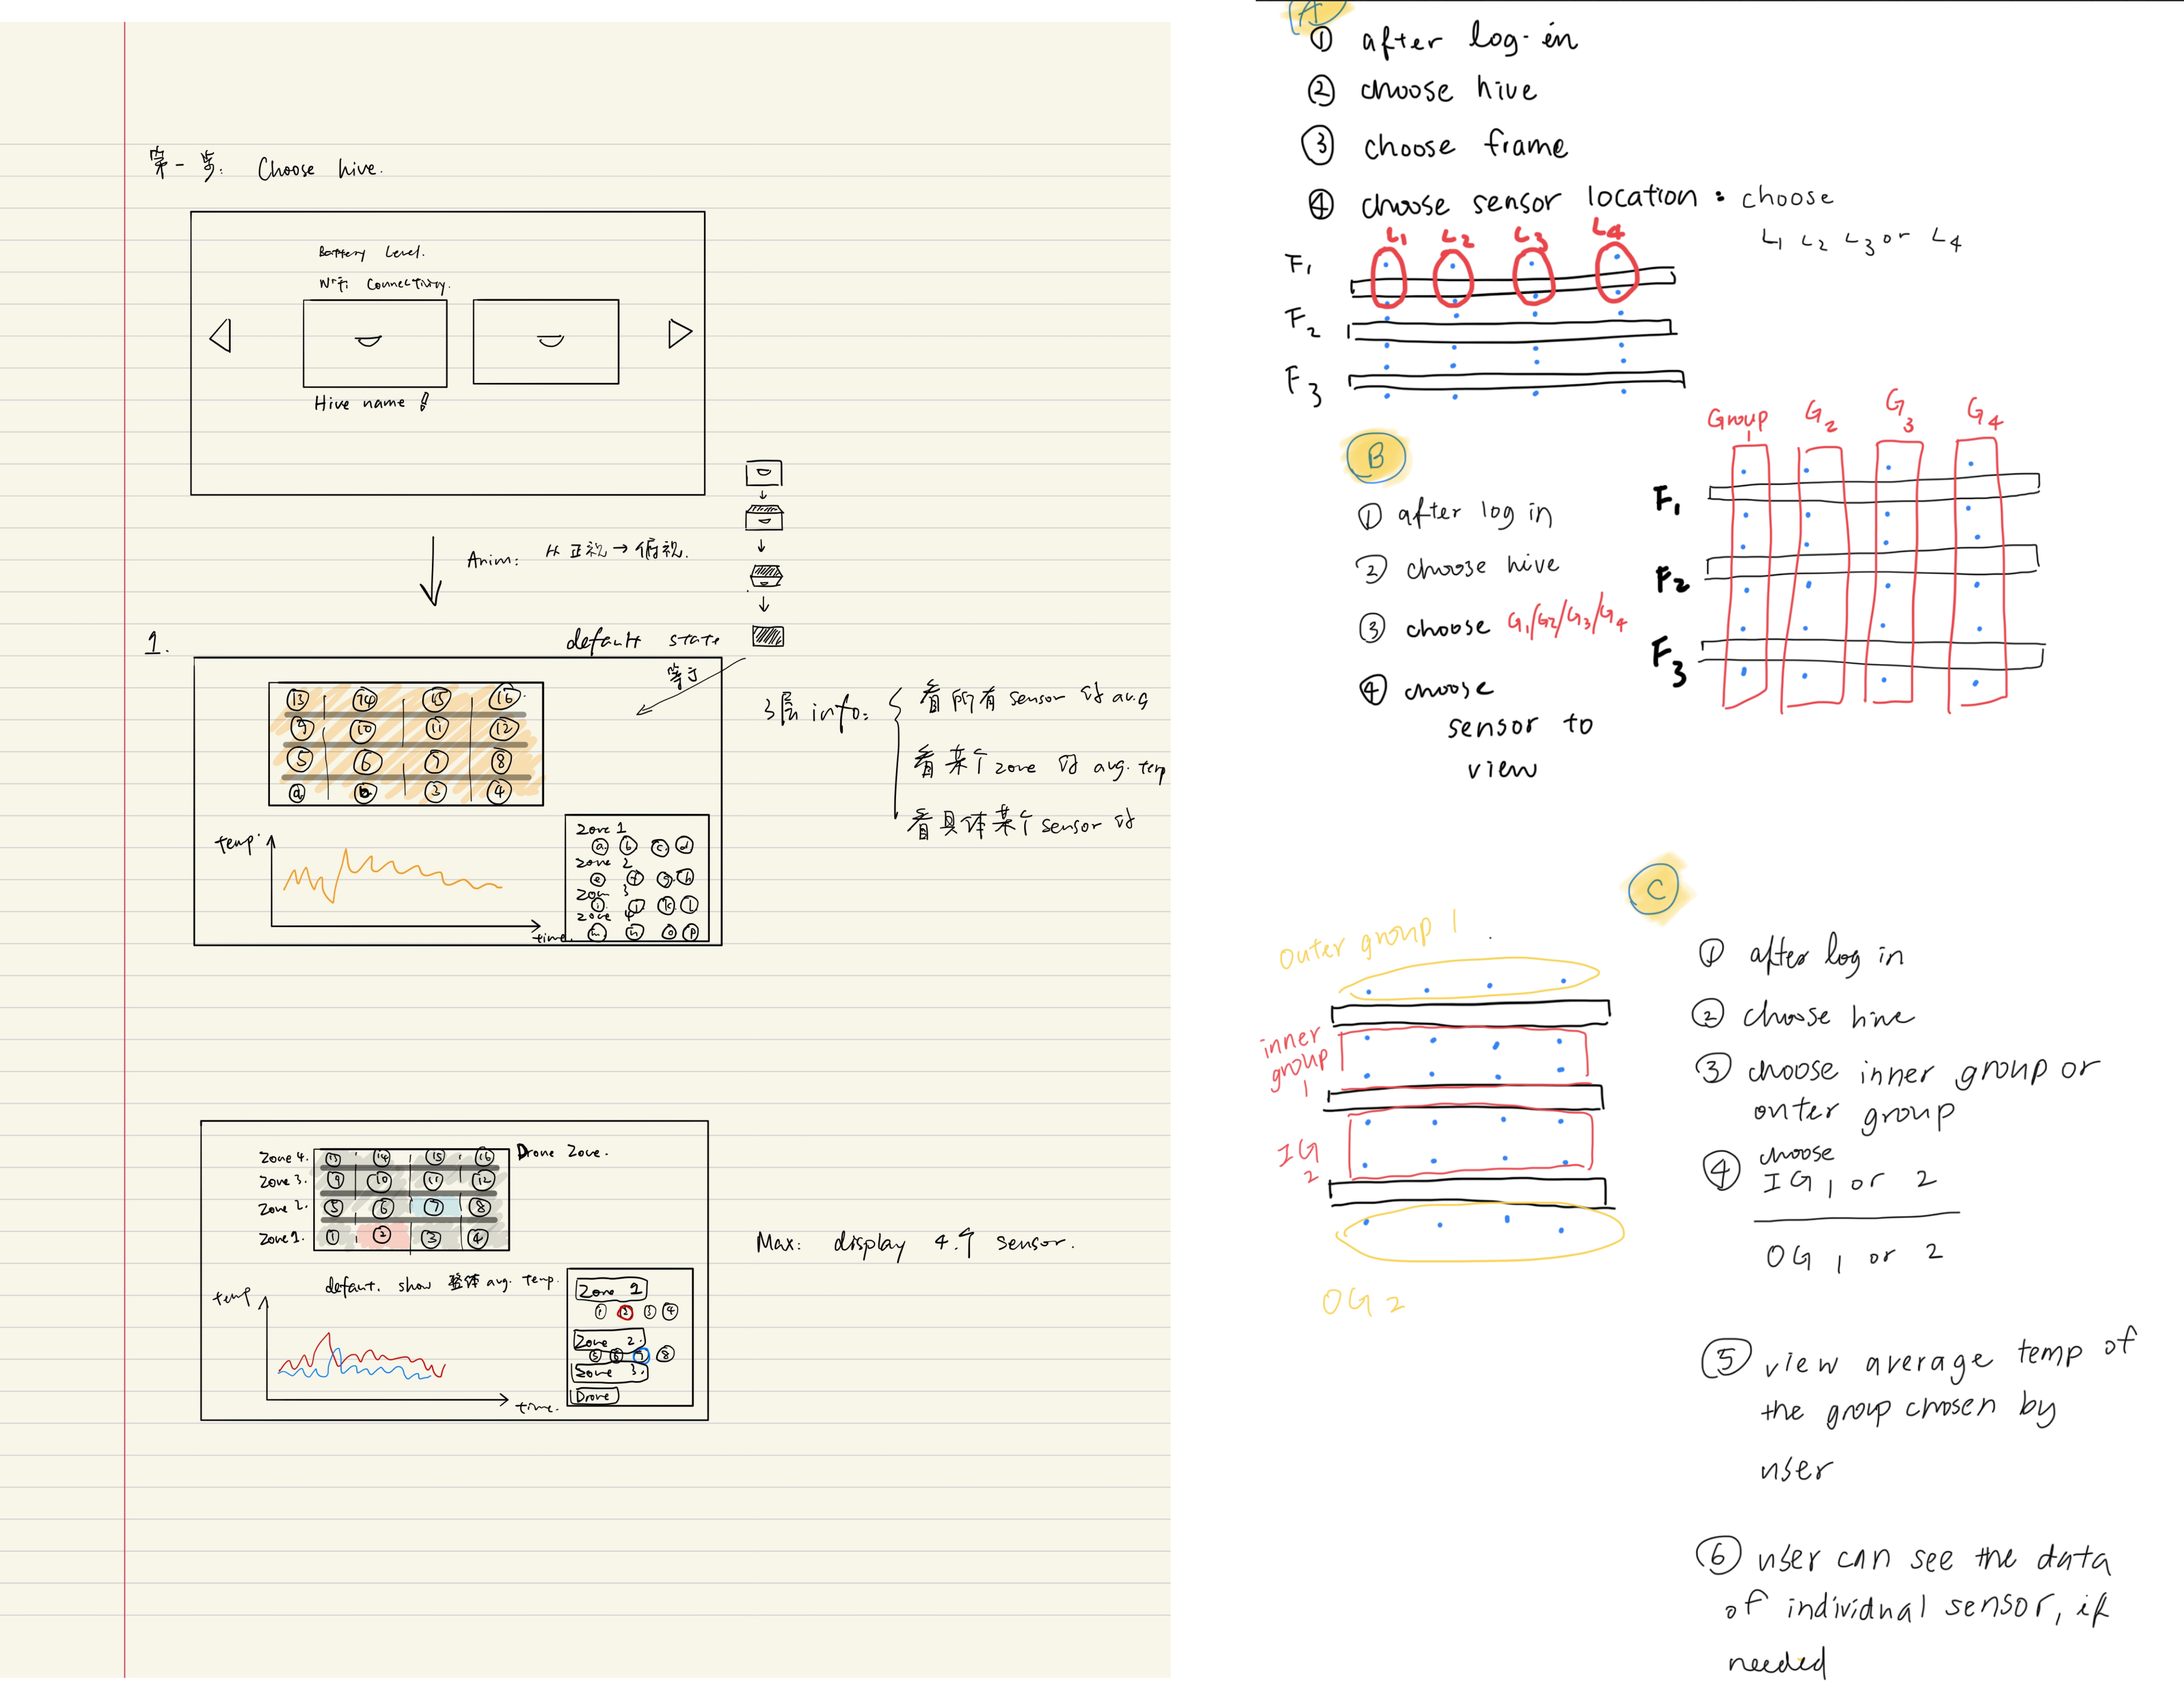 第一步: Choose hive.
Battery Level.
Wifi Connectivity.
Hive name !
Anim: 从正视→俯视.
1.
default state
等于
13 14 15 16
9 10 11 12
5 6 7 8
a b 3 4
temp
time.
zone 1
a b c d
zone 2
e f g h
zone 3
i j k l
zone 4
m n o p
3层 info:
看所有 sensor 的 avg
看某个 zone 的 avg. temp
看具体某个 sensor 的
Zone 4. 13 14 15 16 Drone Zone.
Zone 3. 9 10 11 12
Zone 2. 5 6 7 8
Zone 1. 1 2 3 4
default. show 整体 avg. temp.
temp
time.
Zone 1
1 2 3 4
Zone 2.
5 6 7 8
Zone 3.
Drone
Max: display 4.个 sensor.
A
① after log-in
② choose hive
③ choose frame
④ choose sensor location : choose
L1 L2 L3 or L4
L1 L2 L3 L4
F1
F2
F3
B
① after log in
② choose hive
③ choose G1/G2/G3/G4
④ choose
sensor to
view
Group 1 G2 G3 G4
F1
F2
F3
C
Outer group 1
inner
group
1
IG
2
OG 2
① after log in
② choose hive
③ choose inner group or
outer group
④ choose
IG 1 or 2
OG 1 or 2
⑤ view average temp of
the group chosen by
user
⑥ user can see the data
of individual sensor, if
needed